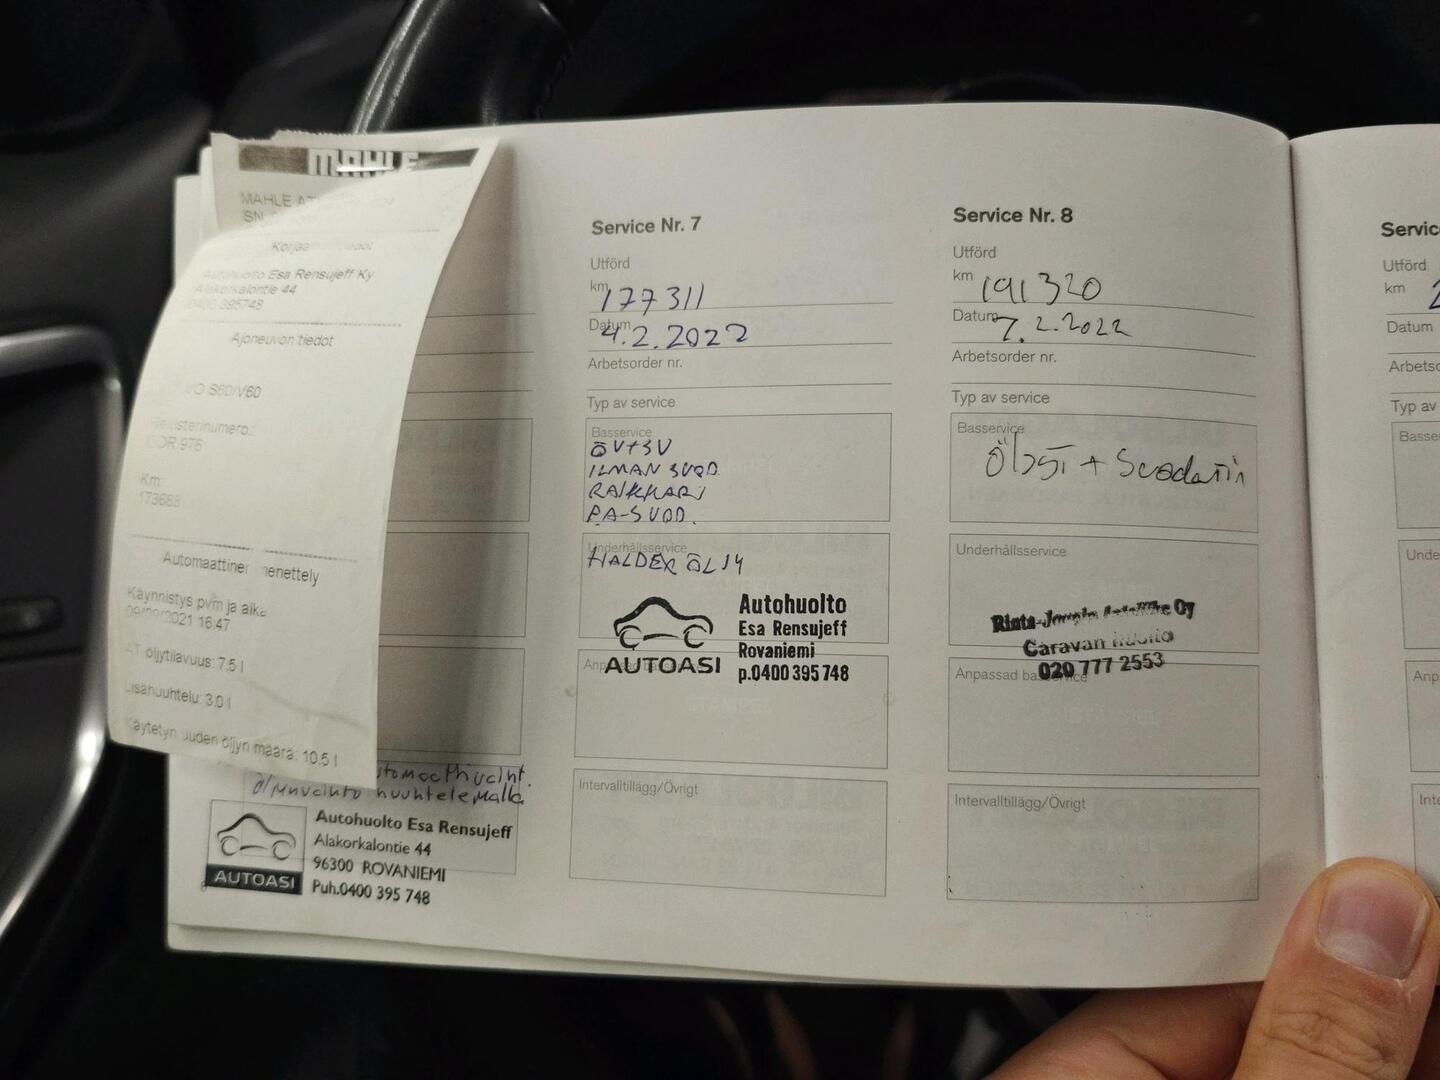 MAHLE
MAHLE
SN
Autohuolto Esa Rensujeff Ky
Alakorkalontie 44
0400 395748
Ajoneuvon tiedot
S60/V60
Km:
173688
Automaattinen menettely
Käynnistys pvm ja aika
2021 16:47
AT öljytilavuus: 7.5 l
Lisähuuhtelu: 3.0 l
Käytetyn uuden öljyn määrä: 10.5 l
öljynvaihto huuhtelemalla
AUTOASI
Autohuolto Esa Rensujeff
Alakorkalontie 44
96300 ROVANIEMI
Puh.0400 395 748
Service Nr. 7
Utförd
km 177311
Datum 4.2.2022
Arbetsorder nr.
Typ av service
Basservice
ÖV+SV
ILMAN SUOD.
RAIKKARI
P.A-SUOD.
Underhållsservice
HALDEX ÖLJY
AUTOASI
Autohuolto
Esa Rensujeff
Rovaniemi
p.0400 395 748
Anpassad
Intervalltillägg/Övrigt
Service Nr. 8
Utförd
km 191320
Datum 7.2.2022
Arbetsorder nr.
Typ av service
Basservice
Öljyt + Suodatin
Underhållsservice
Oy
Caravan huolto
020 777 2553
Anpassad basservice
Intervalltillägg/Övrigt
Utförd
km
Datum
Typ av